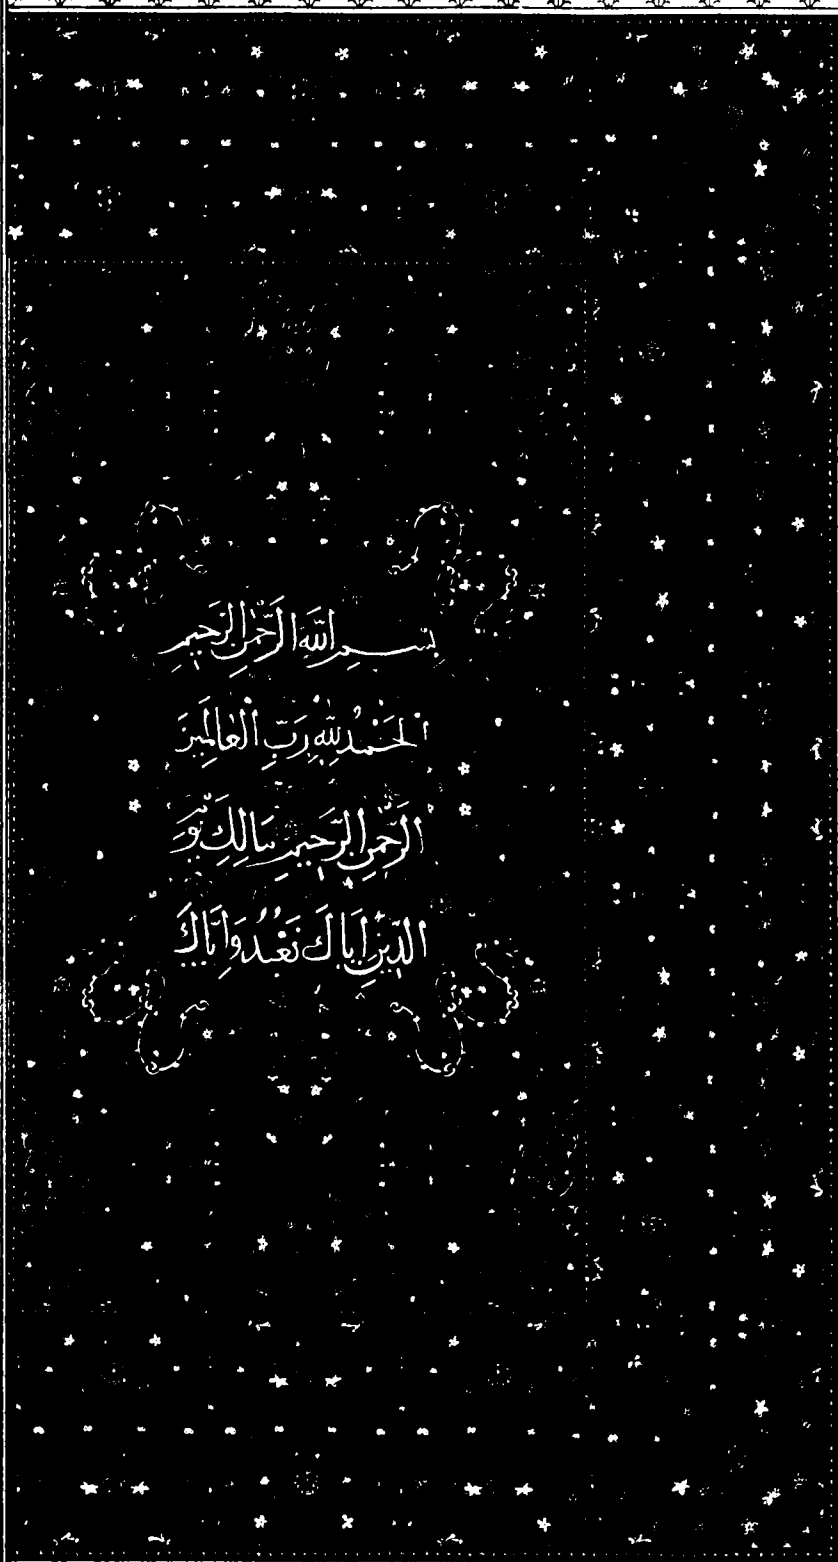 بِسْمِ اللَّهِ الرَّحْمَٰنِ الرَّحِيمِ
الْحَمْدُ لِلَّهِ رَبِّ الْعَالَمِينَ
الرَّحْمَٰنِ الرَّحِيمِ مَالِكِ يَوْمِ
الدِّينِ إِيَّاكَ نَعْبُدُ وَإِيَّاكَ